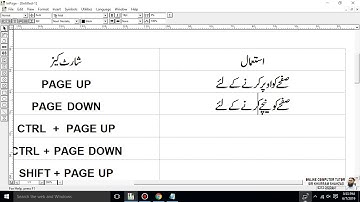 InPage - [Untitled-1]
File Edit Text Insert Symbols Utilities Language Window Help
استعمال شارٹ کیز
صفحے کو اوپر کرنے کے لئے PAGE UP
صفحے کو نیچے کرنے کے لئے PAGE DOWN
CTRL + PAGE UP
CTRL + PAGE DOWN
SHIFT + PAGE UP
ONLINE COMPUTER TUTOR
SIR KHURRAM SHAHZAD
For Help, press F1
Search the web and Windows